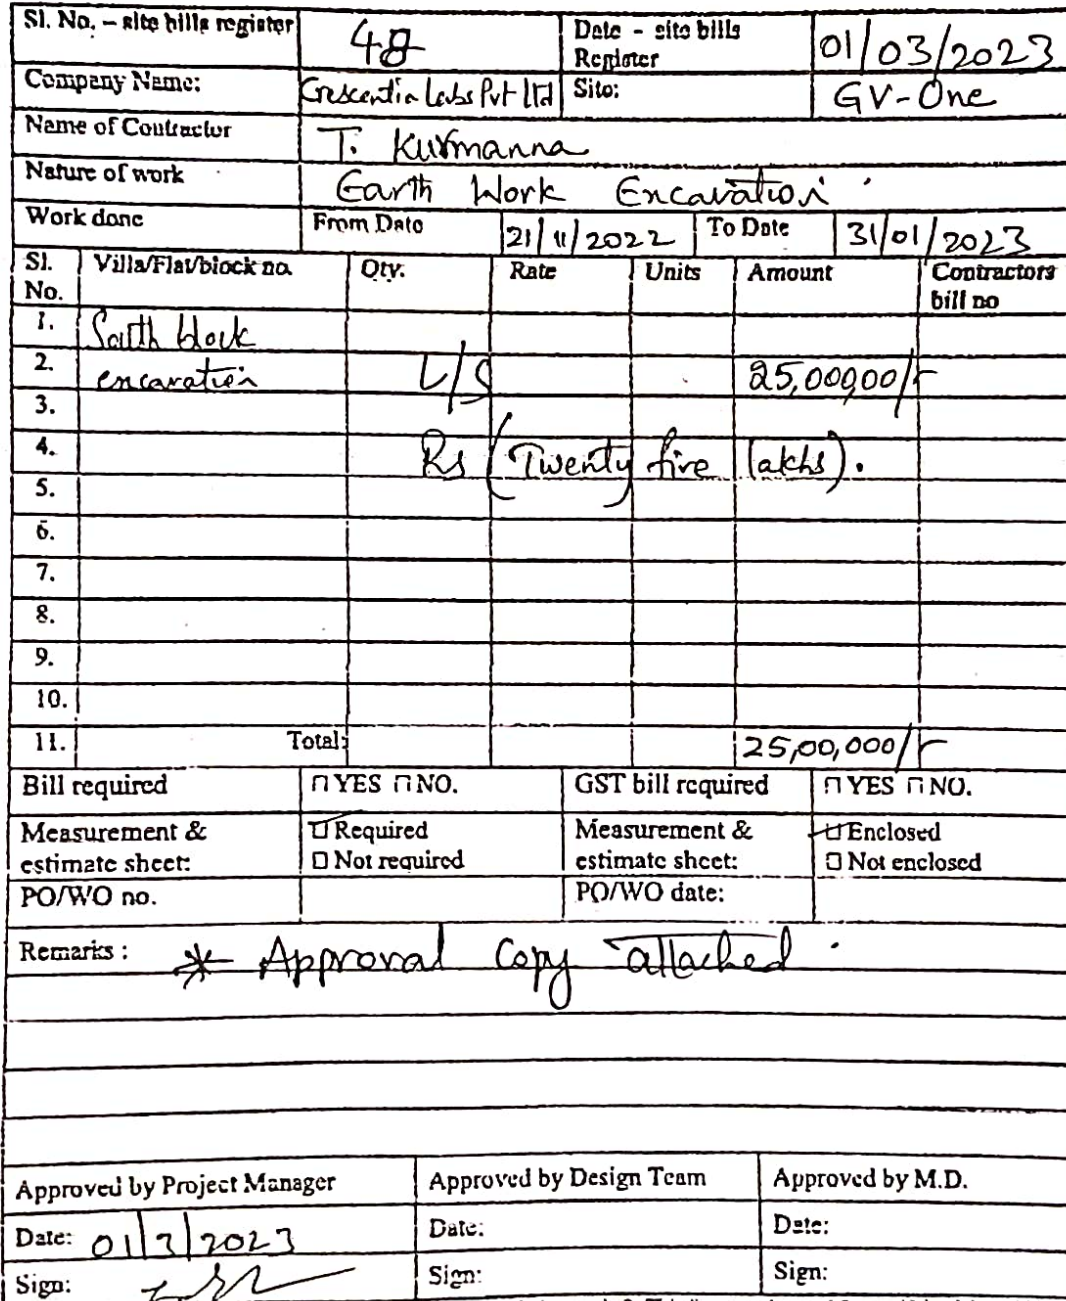 Sl. No. – site bills register 48 Date - site bills Register 01/03/2023
Company Name: Crescentia Labs Pvt Ltd Site: GV-One
Name of Contractor T. Kurmanna
Nature of work Earth Work Encavation
Work done From Date 21/11/2022 To Date 31/01/2023
Sl. No. Villa/Flat/block no. Qty. Rate Units Amount Contractors bill no
1. South block
2. encavation L/S 25,00000/-
3.
4. Rs (Twenty five lakhs).
5.
6.
7.
8.
9.
10.
11. Total: 25,00,000/-
Bill required YES NO. GST bill required YES NO.
Measurement & estimate sheet: Required Not required Measurement & estimate sheet: Enclosed Not enclosed
PO/WO no. PO/WO date:
Remarks : * Approval Copy attached
Approved by Project Manager Approved by Design Team Approved by M.D.
Date: 01/3/2023 Date: Date:
Sign: Sign: Sign: